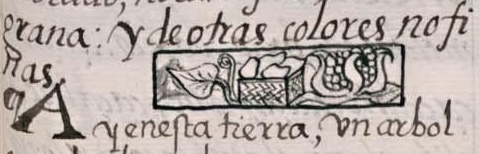 grana: y de otras colores no fi
nas.
Ay en esta tierra, vn arbol